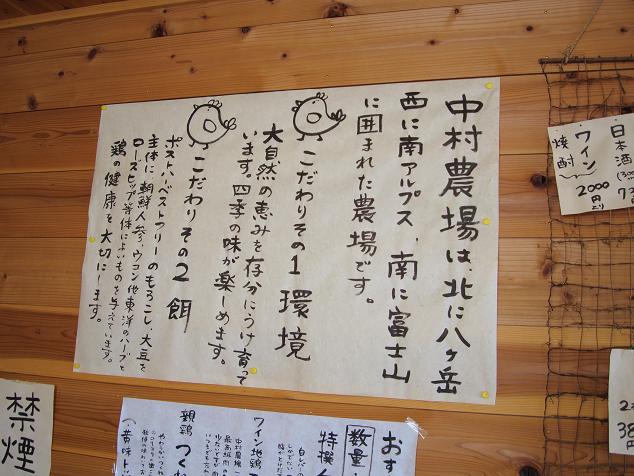 中村農場は、北に八ヶ岳
西に南アルプス、南に富士山
に囲まれた農場です。
こだわりその1 環境
大自然の恵みを存分にうけ育って
います。四季の味が楽しめます。
こだわりその2 餌
ポストハーベストフリーのもろこし、大豆を
主体に、朝鮮人参、ウコン他東洋のハーブと
ローズヒップ等体によいものを与えています。
鶏の健康を大切にします。
日本酒
ワイン
焼酎
2000
より
禁煙
おす
数量
特撰
ワイン地鶏
中村農場
親鶏